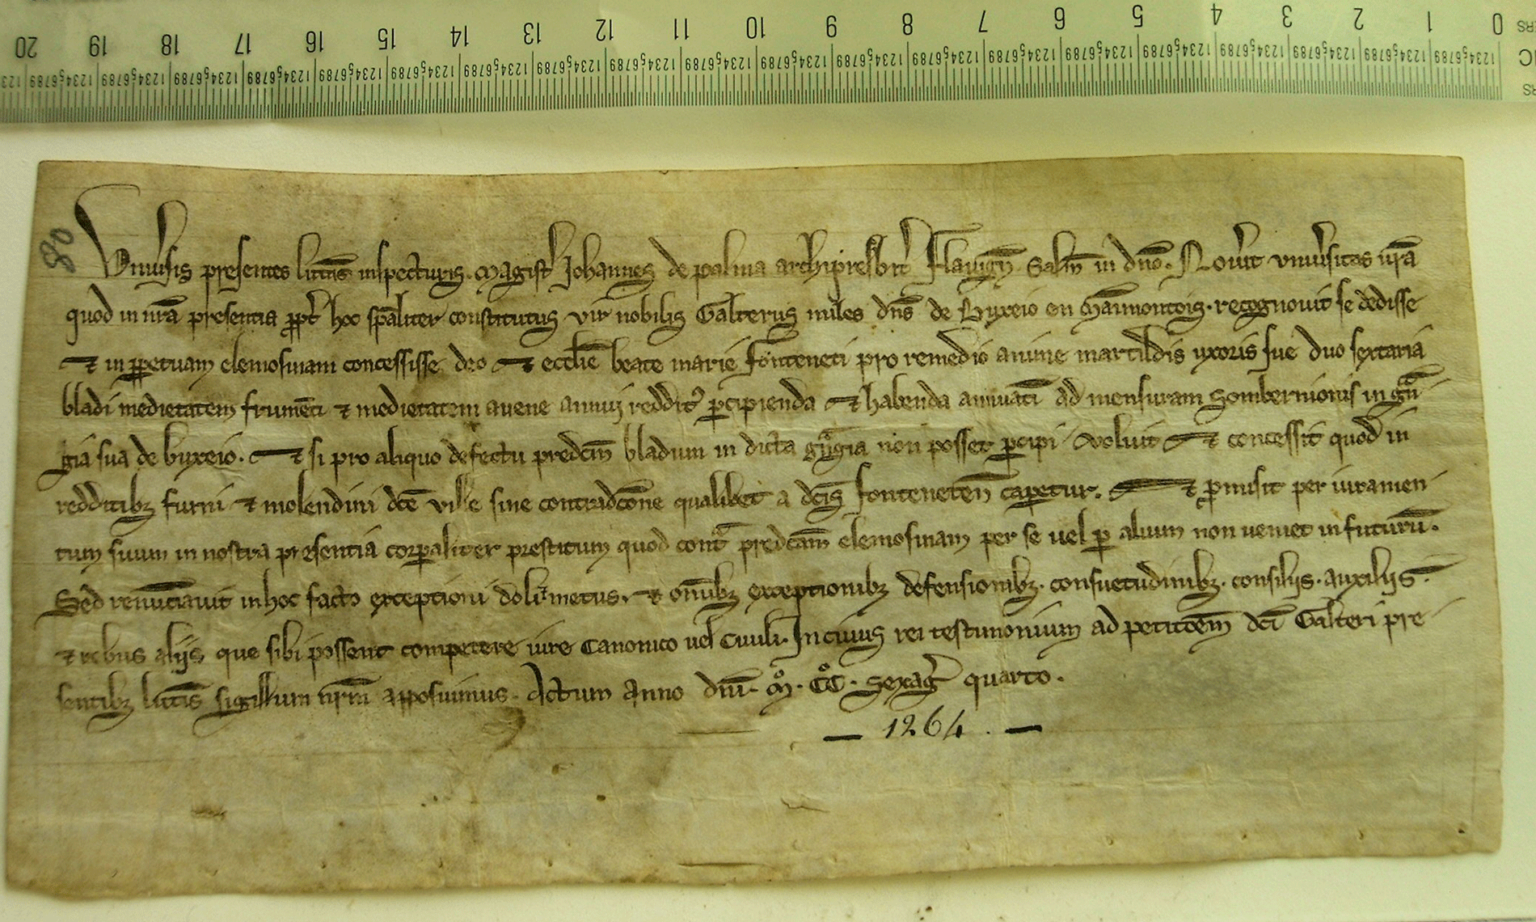 20 19 18 17 16 15 14 13 12 11 10 9 8 7 6 5 4 3 2 1 0
80
Vniu'sis presentes litt'as inspecturis. Magist' Johannes de palma archipresbit' Flauign̄ Saltm̄ in dn̄o. Nou'it vniu'sitas ūra
quod in nr̄a presentia propt' hoc sp̄aliter constitutus vir nobilis Galterus miles dn̄s de Buxeio en Mānmontois. recognouit se dedisse
⁊ in ꝑpetuam elemosinam concessisse deo ⁊ ecclīe beate marie fonteneti pro remedio anime martildis uxoris sue duo sextaria
bladi medietatem frumēti ⁊ medietatem auene annui reddit' ꝑcipienda ⁊ habenda annuatī ad mensuram Sombernionis in gn̄
gia sua de buxeio. ⁊ si pro aliquo defectu predcm̄ bladum in dicta gn̄gia non posset ꝑcipi voluit ⁊ concessit quod in
redditibꝫ furni ⁊ molendini dc̄e ville sine contradc̄one qualibet a dc̄is fonteneteñ caperetur. ⁊ promisit per iuramen
tum suum in nostra presentia corꝑaliter prestitum quod contra predcām elemosinam per se uel ꝑ alium non ueniet in futurū.
Sed renūtiauit in hoc facto exceptioni doli. metus. ⁊ om̄ibꝫ exceptionibꝫ defensionibꝫ. consuetudinibꝫ. consilijs. auxilijs.
⁊ rebus alijs que sibi possent competere iure Canonico uel Ciuili. In cuius rei testimonium ad petitōem dc̄i Galteri pre
sentibꝫ litt'is sigillum nr̄m apposuimus. Actum anno dn̄i. M̊. CC̊. sexag' quarto.
1264